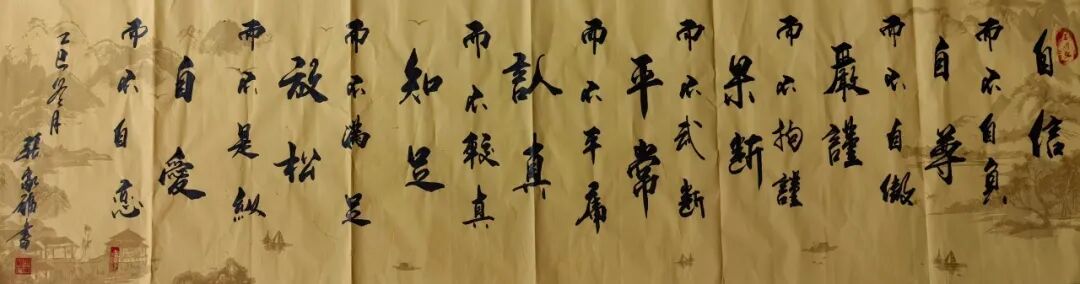 自信
而不自負
自尊
而不自傲
嚴謹
而不拘謹
果断
而不武断
平常
而不平庸
認真
而不較真
知足
而不满足
放松
而不是纵
自愛
而不自恋
乙巳冬月
張書